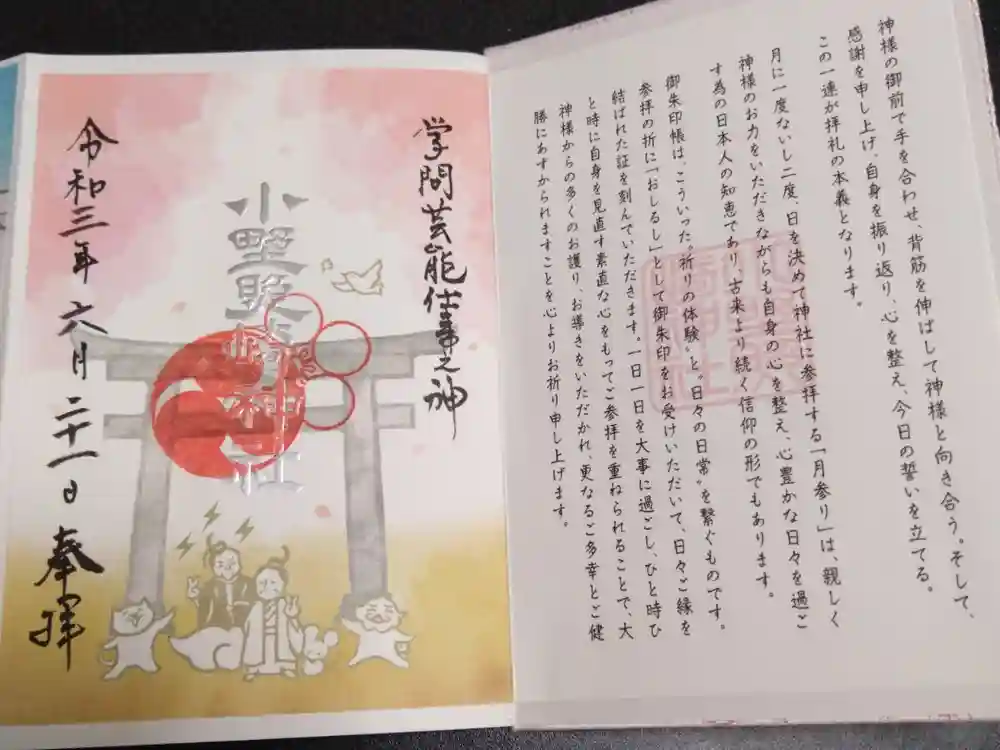 神様の御前で手を合わせ、背筋を伸ばして神様と向き合う。そして、
感謝を申し上げ、自身を振り返り、心を整え、今日の誓いを立てる。
この一連が拝礼の本義となります。
月に一度ないし二度、日を決めて神社に参拝する「月参り」は、親しく
神様のお力をいただきながらも自身の心を整え、心豊かな日々を過ご
す為の日本人の知恵であり、古来より続く信仰の形でもあります。
御朱印帳は、こういった〝祈りの体験〟と〝日々の日常〟を繋ぐものです。
参拝の折に「おしるし」として御朱印をお受けいただいて、日々ご縁を
結ばれた証を刻んでいただきます。一日一日を大事に過ごし、ひと時ひ
と時に自身を見直す素直な心をもってご参拝を重ねられることで、大
神様からの多くのお護り、お導きをいただかれ、更なるご多幸とご健
勝にあずかられますことを心よりお祈り申し上げます。
学問芸能仕事之神
小野照崎神社
令和三年六月二十一日奉拝